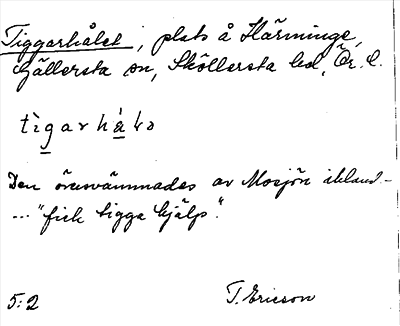 Tiggarhålet, plats å Härminge,
Gällersta sn, Sköllersta hd, Ör. l.
tìgarhǻlə
Den översvämmades av Mosjön ibland -
... "fick tigga hjälp".
5:2 T. Ericson